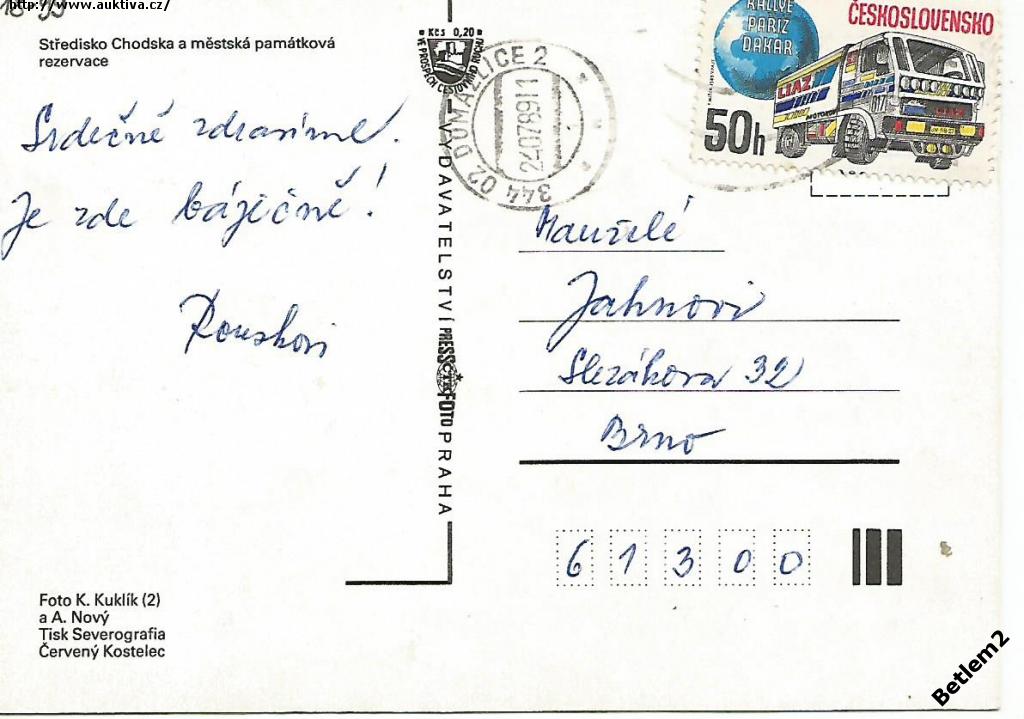 http://www.auktiva.cz/
Středisko Chodska a městská památková
rezervace
Srdečně zdravíme.
Je zde báječně!
Rouskovi
Foto K. Kuklík (2)
a A. Nový
Tisk Severografia
Červený Kostelec
Kčs 0,20
VE PROSPĚCH CESTOVNÍHO RUCHU
VYDAVATELSTVÍ PRESSFOTO PRAHA
344 02 DOMAŽLICE 2
RALLYE
PAŘÍŽ
DAKAR
ČESKOSLOVENSKO
LIAZ
50h
Manželé
Jahnovi
Slezákova 32
Brno
6 1 3 0 0
Betlem2